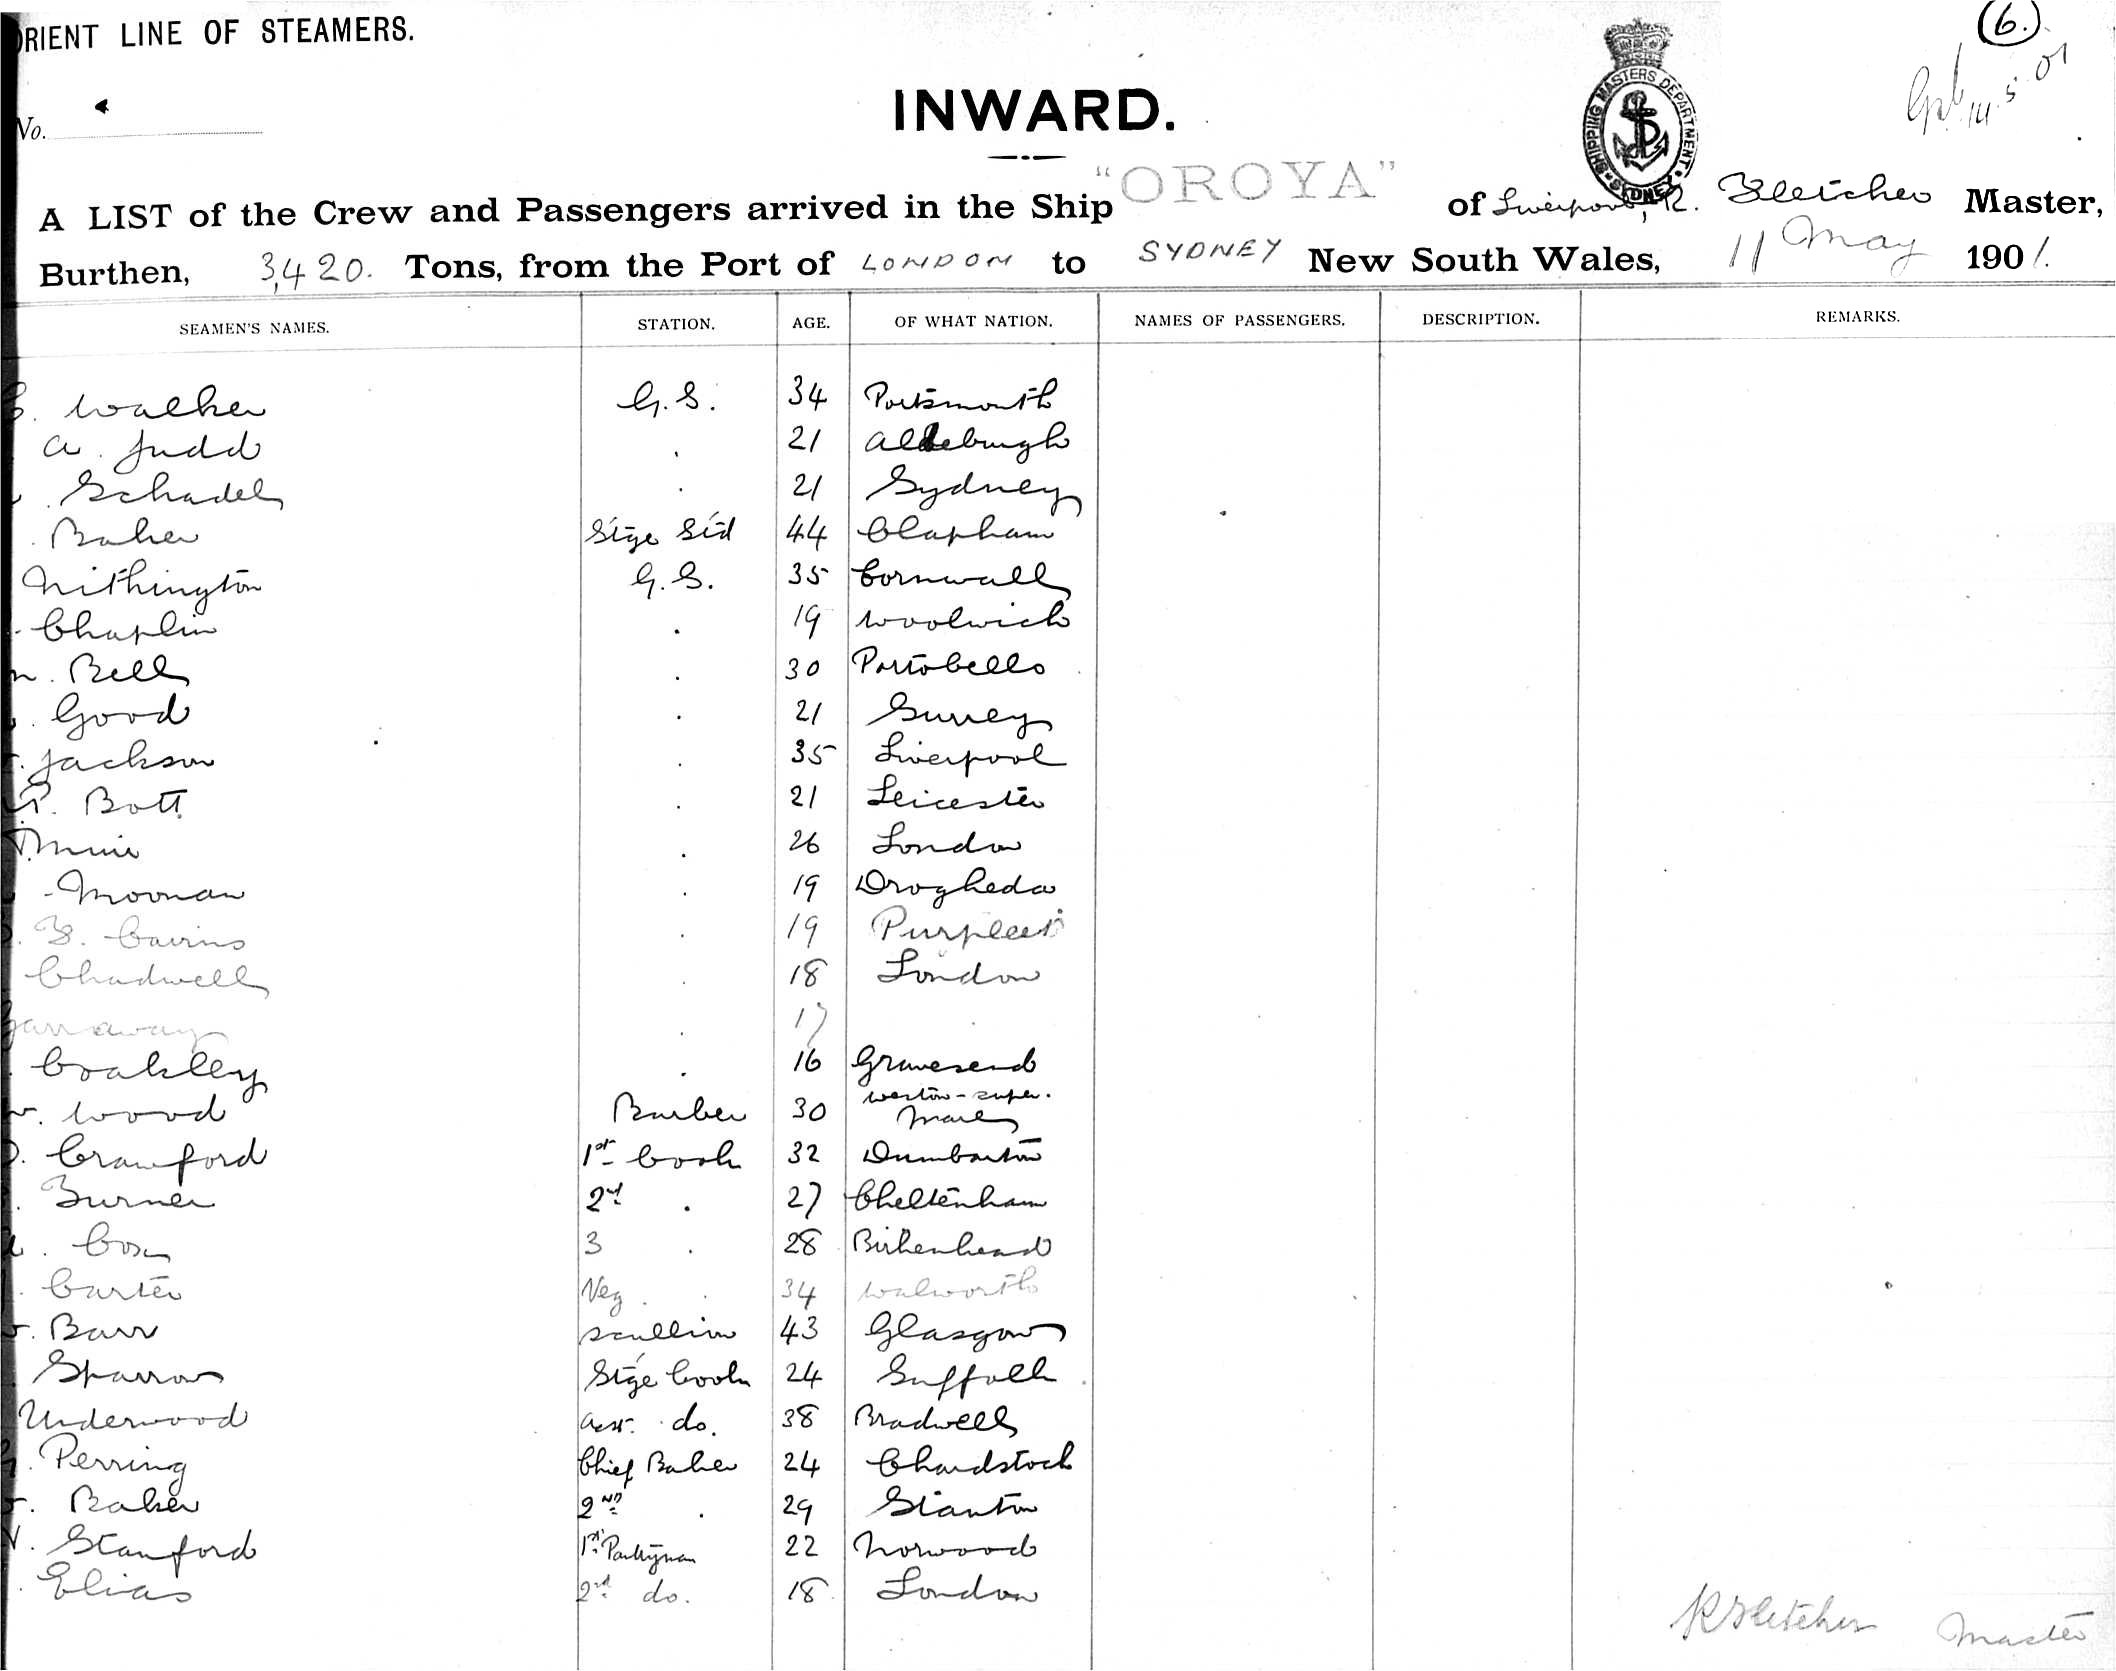 ORIENT LINE OF STEAMERS.
(6.)
14.5.01
No.
INWARD.
SHIPPING MASTERS DEPARTMENT SYDNEY
A LIST of the Crew and Passengers arrived in the Ship "OROYA" of Liverpool, R. Fletcher Master,
Burthen, 3,420. Tons, from the Port of LONDON to SYDNEY New South Wales, 11 May 1901.
SEAMEN'S NAMES. STATION. AGE. OF WHAT NATION. NAMES OF PASSENGERS. DESCRIPTION. REMARKS.
Walker G.S. 34 Portsmouth
A. Judd . 21 Aldeburgh
Schadel . 21 Sydney
Baker Stge Std 44 Clapham
Withington G.S. 35 Cornwall
Chaplin . 19 Woolwich
Bell . 30 Portobello
Good . 21 Surrey
Jackson . 35 Liverpool
Bott . 21 Leicester
. 26 London
Moonan . 19 Drogheda
F. Cairns . 19 Purfleet
Chadwell . 18 London
Garraway . 17 .
Coakley . 16 Gravesend
Wood Barber 30 Weston-super-
Mare
Crawford 1st Cook 32 Dumbarton
Turner 2nd . 27 Cheltenham
Cox 3 . 28 Birkenhead
Carter Veg . . 34 Walworth
Barr Scullion 43 Glasgow
Sparrow Stge Cook 24 Suffolk
Underwood Asst. do. 38 Bradwell
Perring Chief Baker 24 Chardstock
Baker 2ND . 29 Stanton
Stanford 1st Pantryman 22 Norwood
Elias 2nd do. 18 London
R Fletcher Master